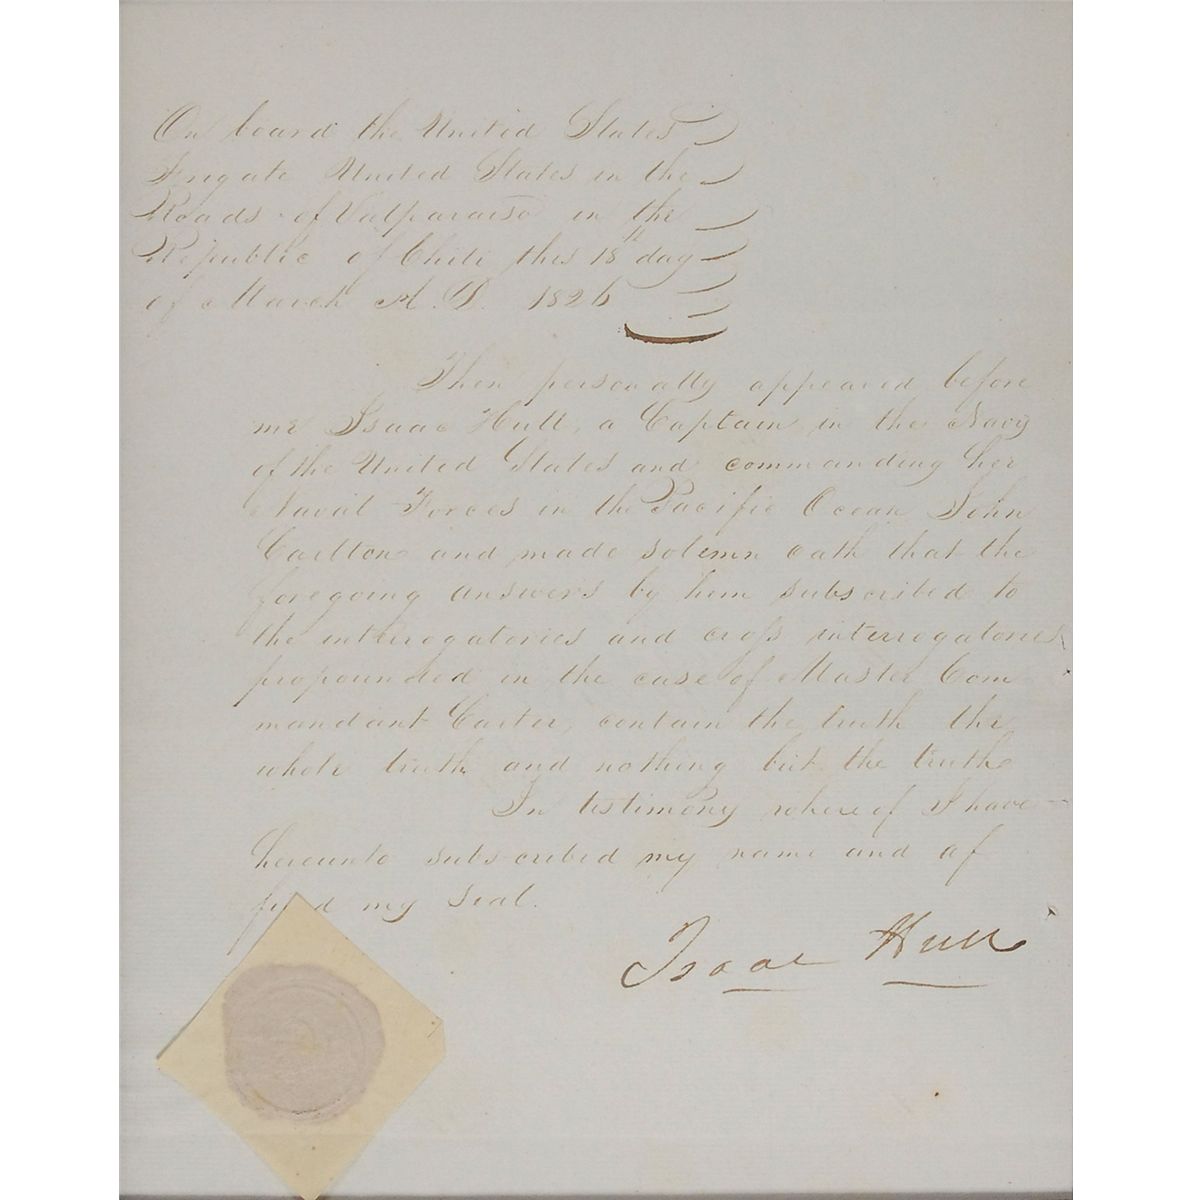 On board the United States
Frigate United States in the
Roads of Valparaiso in the
Republic of Chili this 18th day
of March A.D. 1826
Then personally appeared before
me Isaac Hull, a Captain in the Navy
of the United States and commanding her
Naval Forces in the Pacific Ocean John
Carlton and made solemn oath that the
foregoing answers by him subscribed to
the interrogatories and cross interrogatories
propounded in the case of Master Com
mandant Carter, contain the truth the
whole truth and nothing but the truth
In testimony whereof I have
hereunto subscribed my name and af
fixed my seal.
Isaac Hull